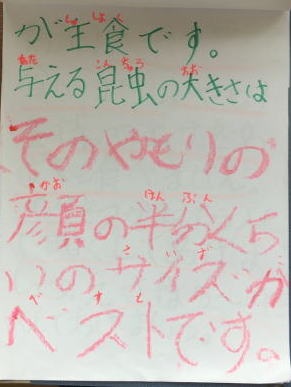 が主食です。
与える昆虫の大きさは
そのやもりの
顔の半分くら
いのサイズが
ベストです。